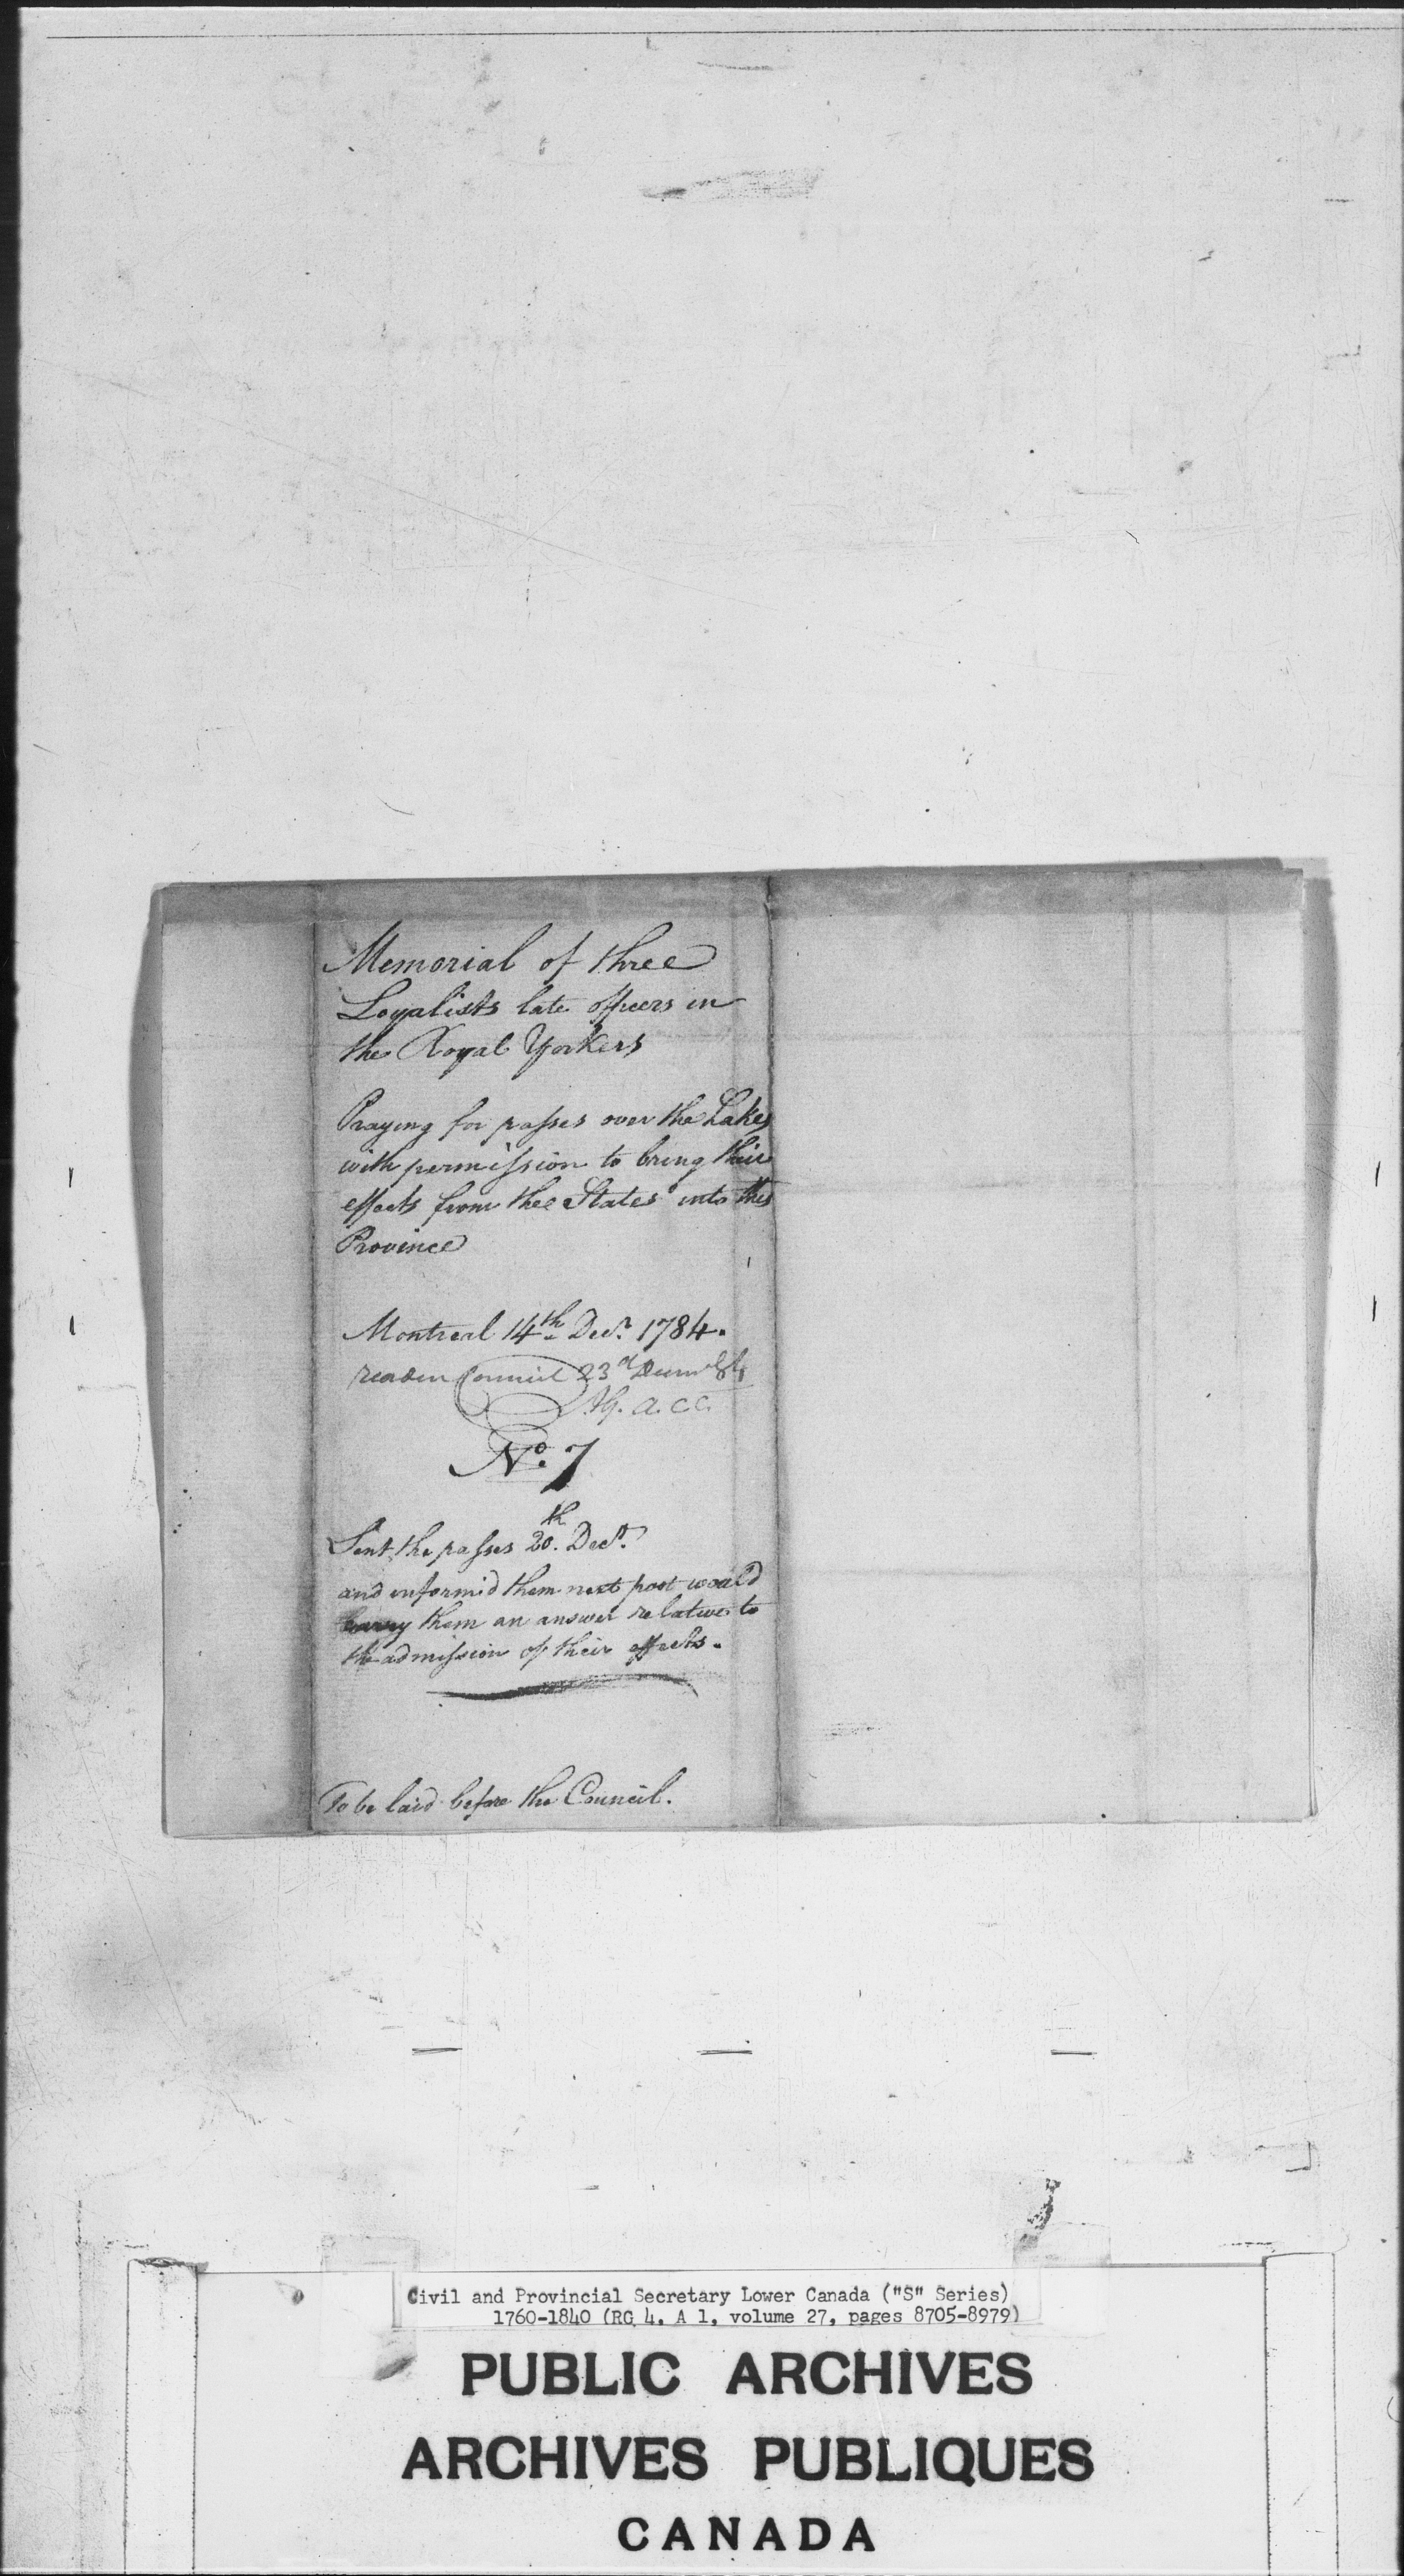 Memorial of three
Loyalists late officers in
the Royal Yorkers
Praying for passes over the Lakes
with permission to bring their
effects from the States into this
Province
Montreal 14th Decr. 1784.
read in Council 23d
a. C. C.
No. 7
Sent the passes 20th. Decr.
and informid them next post would
carry them an answer relative to
the admission of their effects.
To be laid before the Council.
Civil and Provincial Secretary Lower Canada ("S" Series)
1760-1840 (RG 4, A 1, volume 27, pages 8705-8979)
PUBLIC ARCHIVES
ARCHIVES PUBLIQUES
CANADA